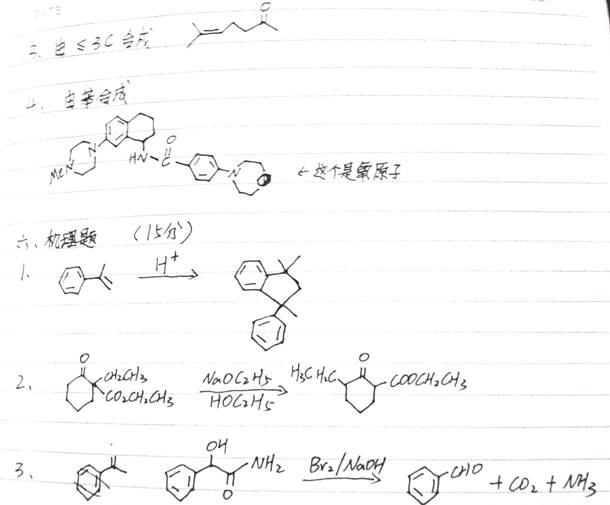 3. 由≤3C合成 O
4. 由苯合成
MeN N HN C O N ←这个是氧原子
六、机理题 (15分)
1. H+
2. O CH2CH3 CO2CH2CH3 NaOC2H5 HOC2H5 H3CH2C O COOCH2CH3
3. OH NH2 O Br2/NaOH CHO + CO2 + NH3